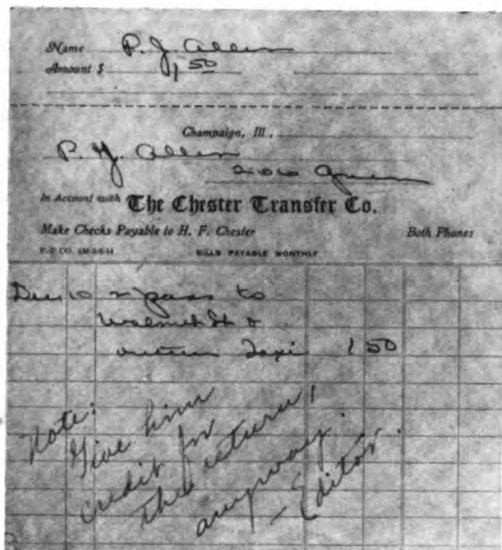 Name P. J. Allen
Amount $ 1 50
Champaign, Ill.,
P. J. Allen
Green
In Account with The Chester Transfer Co.
Make Checks Payable to H. F. Chester Both Phones
BILLS PAYABLE MONTHLY
Dec 10 2 pass to
Walnut St &
return Taxi 1 50
Note:
Give him
credit for
the return,
anyway.
- Editor.